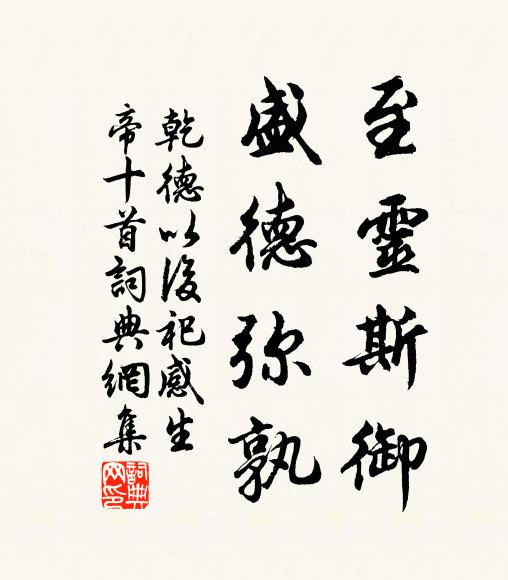 至靈斯御
盛德弥孰
乾德以後祀感生
帝十首詞典網集
詞典网印